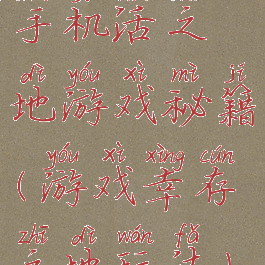 手机活之
dì yóu xì mì jí
地游戏秘籍
yóu xì xìng cún
(游戏幸存
zhī dì wán fǎ
之地玩法)